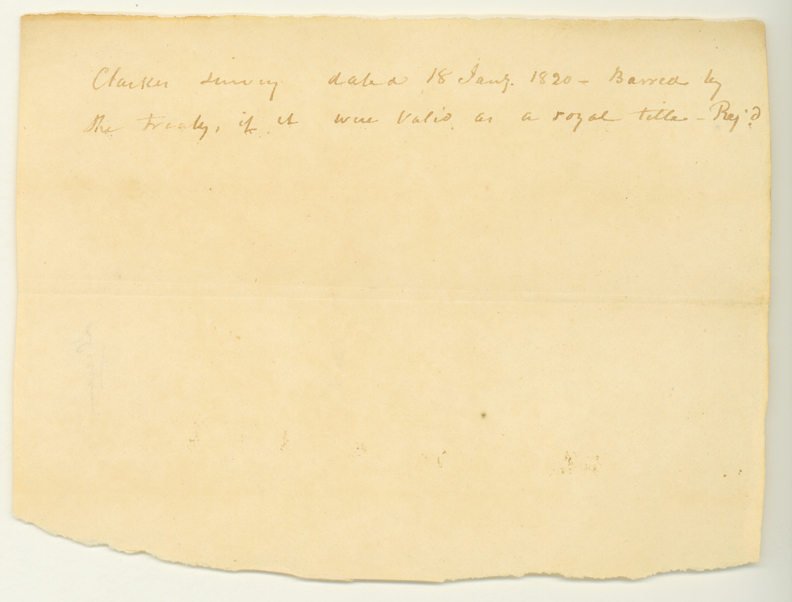 Clarkes survey dated 18 Jany. 1820 - Barred by
the treaty, if it were valid as a royal title - Rej'd